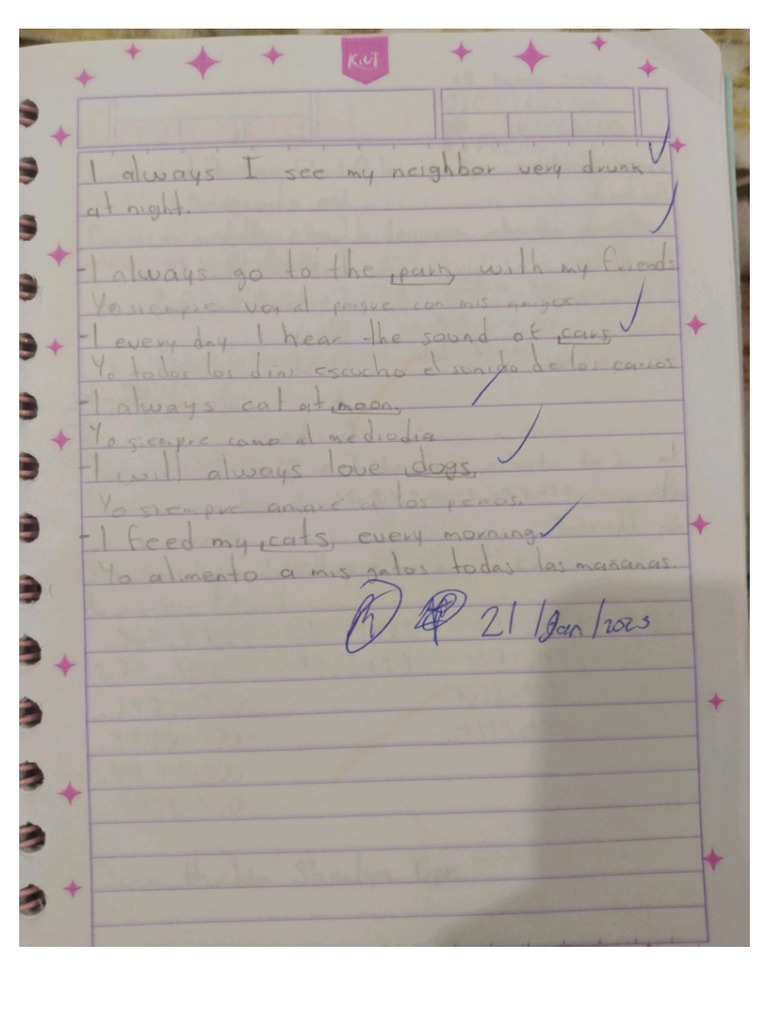 KIUT
I always I see my neighbor very drunk
at night.
-I always go to the park with my friends
Yo siempre voy al parque con mis amigos
-I every day I hear the sound of cars
Yo todos los dias escucho el sonido de los carros
-I always eat at moon
Yo siempre como al mediodia
-I will always love dogs
Yo siempre amaré a los perros.
-I feed my cats, every morning
Yo alimento a mis gatos todas las mañanas.
21/Jan/2023